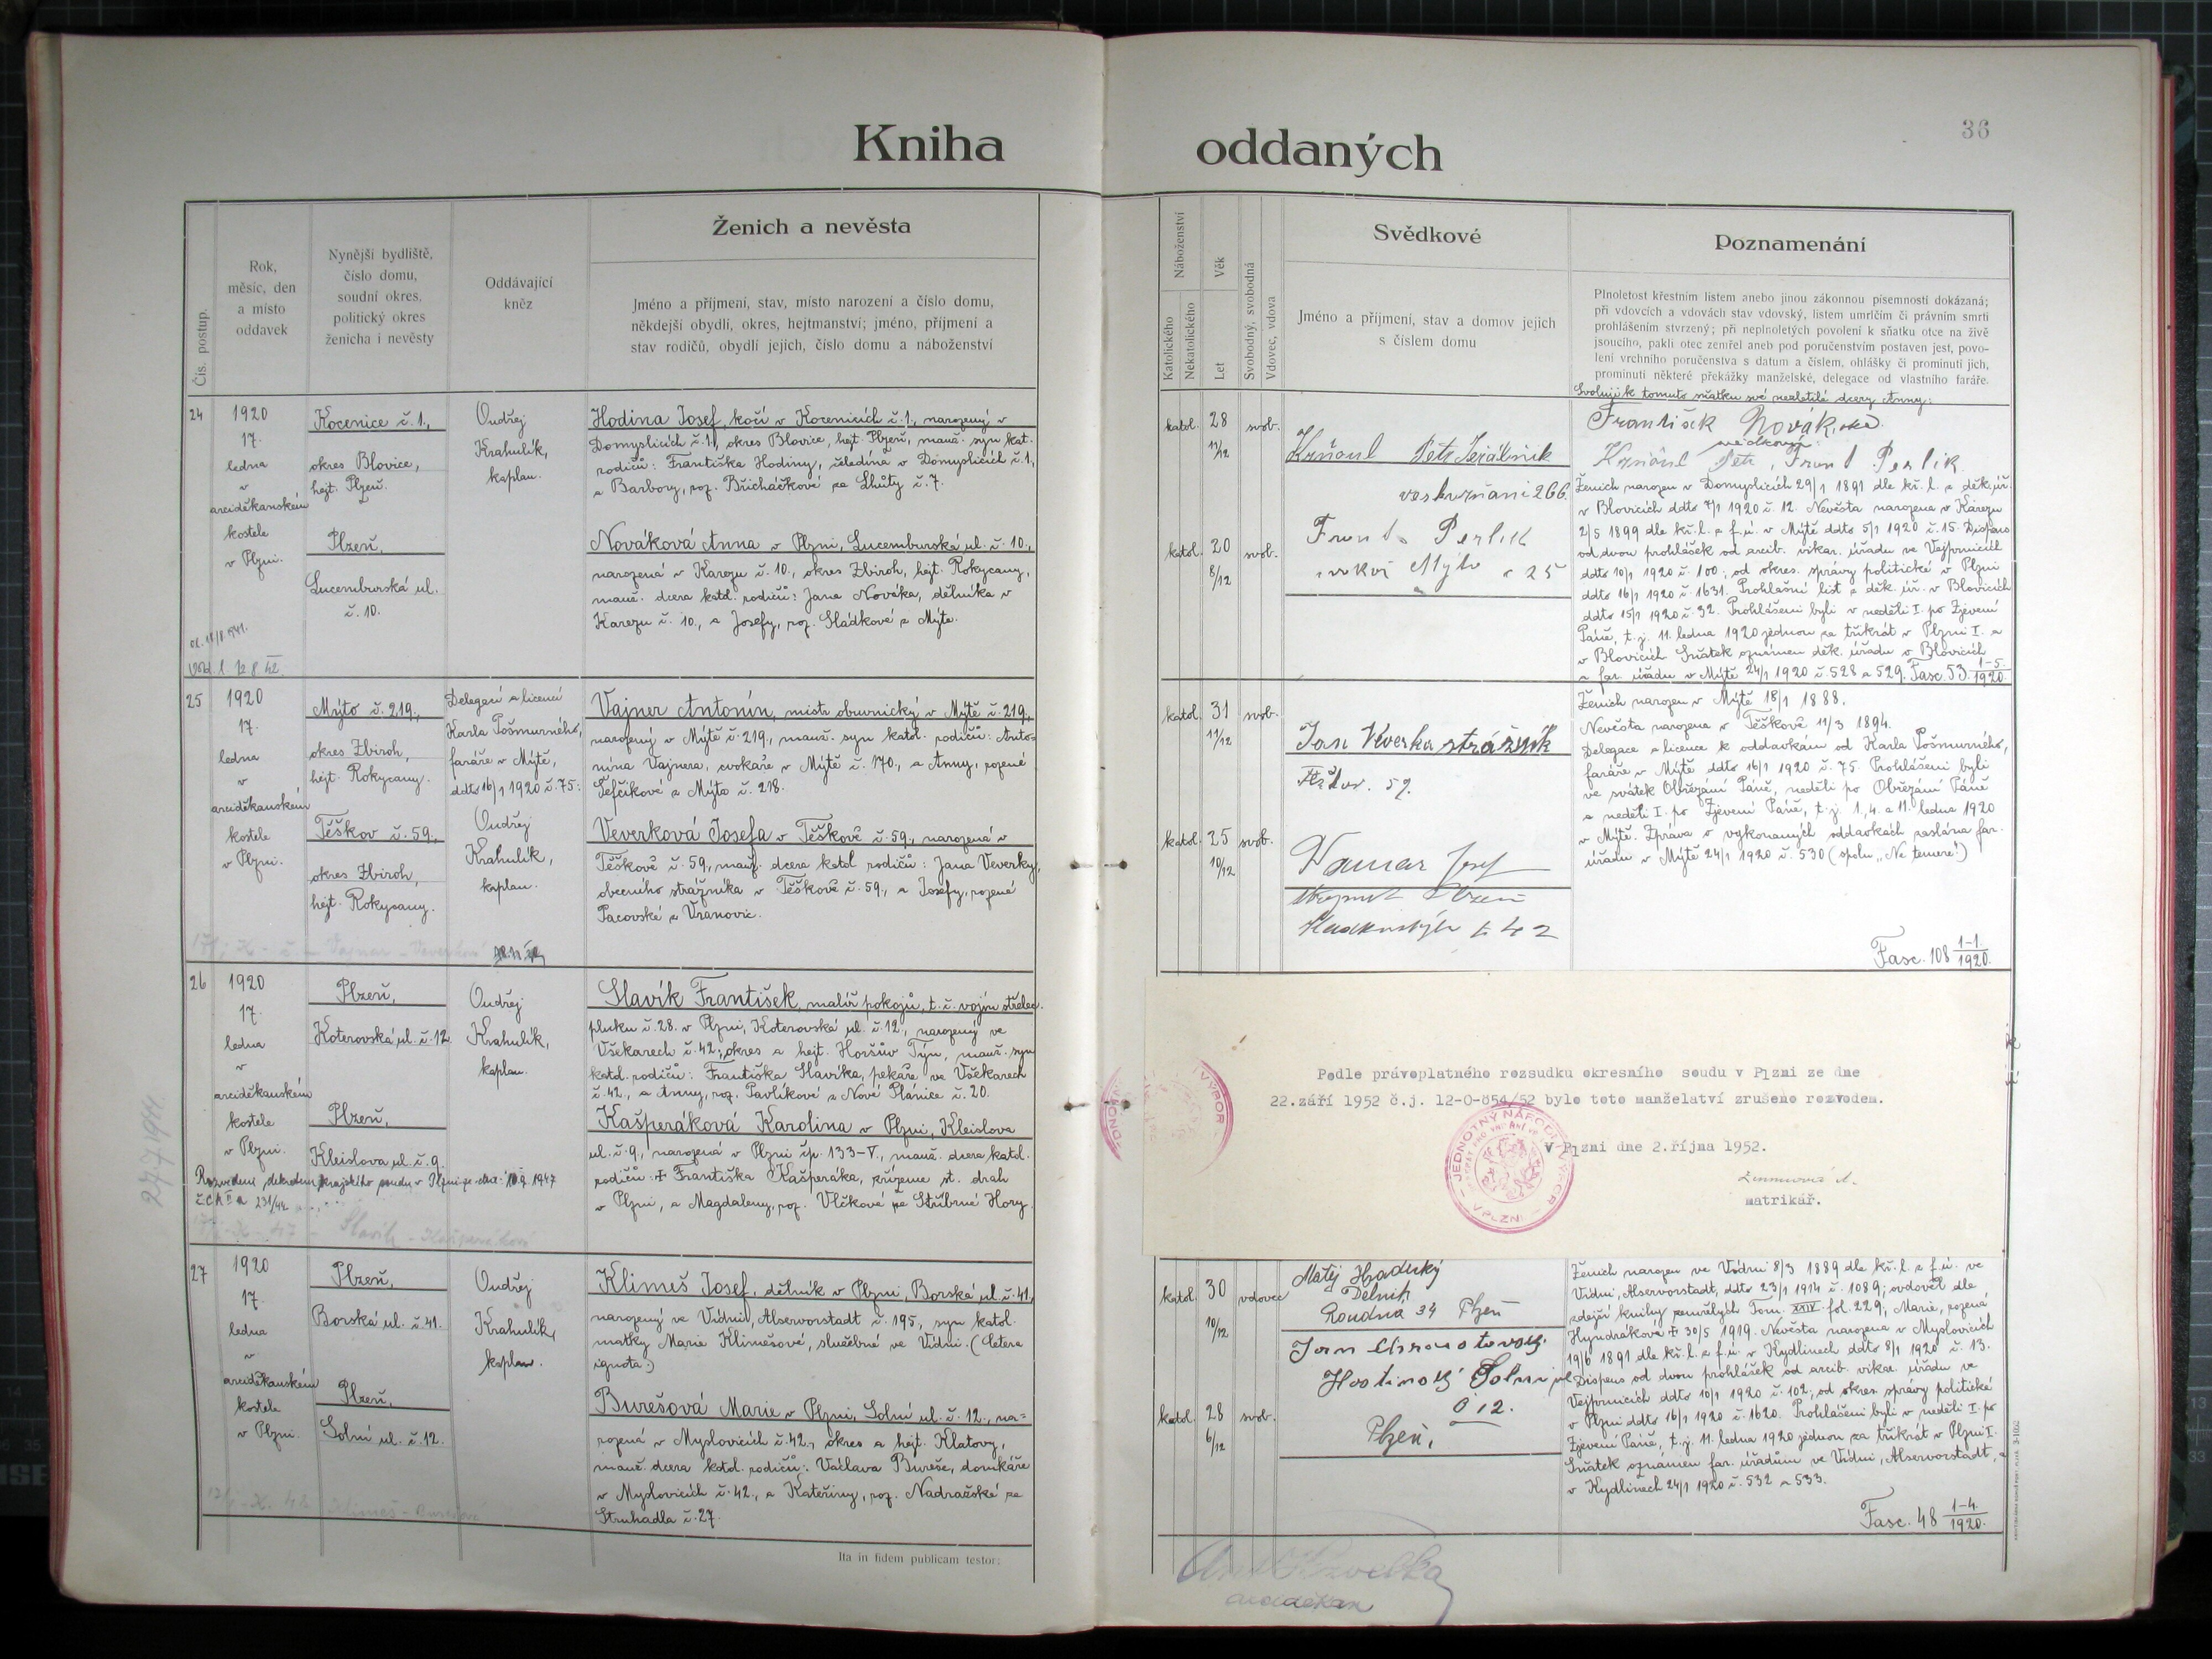 Kniha oddaných
36
Čís. postup.
Rok,
měsíc, den
a místo
oddavek
Nynější bydliště,
číslo domu,
soudní okres,
politický okres
ženicha i nevěsty
Oddávající
kněz
Ženich a nevěsta
Jméno a příjmení, stav, místo narození a číslo domu,
někdejší obydlí, okres, hejtmanství; jméno, příjmení a
stav rodičů, obydlí jejich, číslo domu a náboženství
Náboženství
Katolického
Nekatolického
Věk
Let
Svobodný, svobodná
Vdovec, vdova
Svědkové
Jméno a příjmení, stav a domov jejich
s číslem domu
Poznamenání
Plnoletost křestním listem anebo jinou zákonnou písemností dokázaná;
při vdovcích a vdovách stav vdovský, listem umrlčím či právním smrti
prohlášením stvrzený; při neplnoletých povolení k sňatku otce na živě
jsoucího, pakli otec zemřel aneb pod poručenstvím postaven jest, povo-
lení vrchního poručenstva s datum a číslem, ohlášky či prominutí jich,
prominutí některé překážky manželské, delegace od vlastního faráře.
24
1920
17.
ledna
v
arciděkanském
kostele
v Plzni.
Kocenice č. 1.,
okres Blovice,
hejt. Plzeň.
Plzeň,
Lucemburská ul.
č. 10.
Ondřej
Krahulík,
kaplan.
Hodina Josef, kočí v Kocenicích č. 1., narozený v
Domyslicích č. 1., okres Blovice, hejt. Plzeň, manž. syn kat.
rodičů: Františka Hodiny, čeledína v Domyslicích č. 1.,
a Barbory, roz. Břicháčkové ze Lhůty č. 7.
Nováková Anna v Plzni, Lucemburská ul. č. 10.,
narozená v Karezu č. 10., okres Zbiroh, hejt. Rokycany,
manž. dcera katol. rodičů: Jana Nováka, dělníka v
Karezu č. 10., a Josefy, roz. Sládkové z Mýta.
katol. 28 11/12 svob.
katol. 20 8/12 svob.
Petr
266
Perlík
25
Svoluji k tomuto sňatku své nezletilé dcery Anny:
František Novák,
svědkové:
Petr, Perlik
Ženich narozen v Domyslicích 29/1 1891 dle kř. l. z děk. úř.
v Blovicích ddto 7/1 1920 č. 12. Nevěsta narozena v Karezu
2/5 1899 dle kř. l. z f. ú. v Mýtě ddto 5/1 1920 č. 15. Dispens
od dvou prohlášek od arcib. vikar. úřadu ve Vejprnicích
ddto 10/1 1920 č. 100; od okres. správy politické v Plzni
ddto 16/1 1920 č. 1631. Prohlašní list z děk. úř. v Blovicích
ddto 15/1 1920 č. 32. Prohlášeni byli v neděli I. po Zjevení
Páně, t. j. 11. ledna 1920 jednou za třikrát v Plzni I. a
v Blovicích. Sňatek oznámen děk. úřadu v Blovicích
a far. úřadu v Mýtě 24/1 1920 č. 528 a 529. Fasc. 53. 1-5./1920.
25
1920
17.
ledna
v
arciděkanském
kostele
v Plzni.
Mýto č. 219.,
okres Zbiroh,
hejt. Rokycany.
Těškov č. 59.,
okres Zbiroh,
hejt. Rokycany.
Delegací a licencí
Karla Pošmurného,
faráře v Mýtě,
ddto 16/1 1920 č. 75:
Ondřej
Krahulík,
kaplan.
Vajner Antonín, mistr obuvnický v Mýtě č. 219.,
narozený v Mýtě č. 219., manž. syn katol. rodičů: Anto-
nína Vajnera, cvokaře v Mýtě č. 170., a Anny, rozené
Šefčíkové z Mýta č. 218.
Veverková Josefa v Těškově č. 59., narozená v
Těškově č. 59., manž. dcera katol. rodičů: Jana Veverky,
obecního strážníka v Těškově č. 59., a Josefy, rozené
Pacovské z Vranovic.
katol. 31 11/12 svob.
katol. 25 10/12 svob.
Jan Veverka strážník
59.
Josef
42
Ženich narozen v Mýtě 18/1 1888.
Nevěsta narozena v Těškově 11/3 1894.
Delegace a licence k oddavkám od Karla Pošmurného,
faráře v Mýtě ddto 16/1 1920 č. 75. Prohlášeni byli
ve svátek Obřezání Páně, neděli po Obřezání Páně
a neděli I. po Zjevení Páně, t. j. 1., 4. a 11. ledna 1920
v Mýtě. Zpráva o vykonaných oddavkách zaslána far.
úřadu v Mýtě 24/1 1920 č. 530 (spolu „Ne temere!")
Fasc. 108 1-1/1920.
26
1920
17.
ledna
v
arciděkanském
kostele
v Plzni.
Plzeň,
Koterovská ul. č. 12.
Plzeň,
Kleislova ul. č. 9.
Ondřej
Krahulík,
kaplan.
Slavík František, malíř pokojů, t. č. vojín střelec.
pluku č. 28. v Plzni, Koterovská ul. č. 12., narozený ve
Všekarech č. 42., okres a hejt. Horšův Týn, manž. syn
katol. rodičů: Františka Slavíka, pekaře ve Všekarech
č. 42., a Anny, roz. Pavlíkové z Nové Plánice č. 20.
Kašperáková Karolina v Plzni, Kleislova
ul. č. 9., narozená v Plzni čp. 133-V., manž. dcera katol.
rodičů: + Františka Kašperáka, zřízence st. drah
v Plzni, a Magdaleny, roz. Vlčkové ze Stříbrné Hory.
Podle právoplatného rozsudku okresního soudu v Plzni ze dne
22.září 1952 č.j. 12-O-854/52 bylo toto manželství zrušeno rozvodem.
V Plzni dne 2.října 1952.
matrikář.
27
1920
17
ledna
v
arciděkanském
kostele
v Plzni.
Plzeň,
Borská ul. č. 41.
Plzeň,
Solní ul. č. 12.
Ondřej
Krahulík,
kaplan.
Klimeš Josef, dělník v Plzni, Borská ul. č. 41.,
narozený ve Vídni, Alservorstadt č. 195, syn katol.
matky Marie Klimešové, služebné ve Vídni. (Cetera
ignota.)
Burešová Marie v Plzni, Solní ul. č. 12., na-
rozená v Myslovicích č. 42., okres a hejt. Klatovy,
manž. dcera katol. rodičů: Václava Bureše, domkáře
v Myslovicích č. 42., a Kateřiny, roz. Nadračské ze
Struhadla č. 27.
katol. 30 10/12 vdovec
katol. 28 6/12 svob.
Matěj Hradecký
Dělník
Roudná 34 Plzeň
Jan
Hostinský Solní ul
č 12.
Plzeň,
Ženich narozen ve Vídni 8/3 1889 dle kř. l. z f. ú. ve
Vídni, Alservorstadt, ddto 23/1 1914 č. 1089; ovdověl dle
zdejší knihy zemřelých Tom. XXIV. fol. 229, Marie, rozená
Hyndráková + 30/5 1919. Nevěsta narozena v Myslovicích
19/6 1891 dle kř. l. z f. ú. v Kydlinech ddto 8/1 1920 č. 13.
Dispens od dvou prohlášek od arcib. vikar. úřadu ve
Vejprnicích ddto 10/1 1920 č. 102; od okres. správy politické
v Plzni ddto 16/1 1920 č. 1620. Prohlášeni byli v neděli I. po
Zjevení Páně, t. j. 11. ledna 1920 jednou za třikrát v Plzni I.
Sňatek oznámen far. úřadům ve Vídni, Alservorstadt, a
v Kydlinech 24/1 1920 č. 532 a 533.
Fasc. 48 1-4./1920.
Ita in fidem publicam testor:
arciděkan